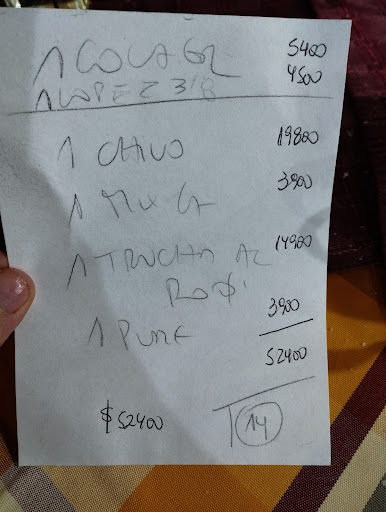 1 COCA GR 5400
1 LOPEZ 3/8 4500
1 CHIVO 19800
1 MIXTA 3900
1 TRUCHA AL 14900
ROQ'
1 PURE 3900
52400
$52400 T 14